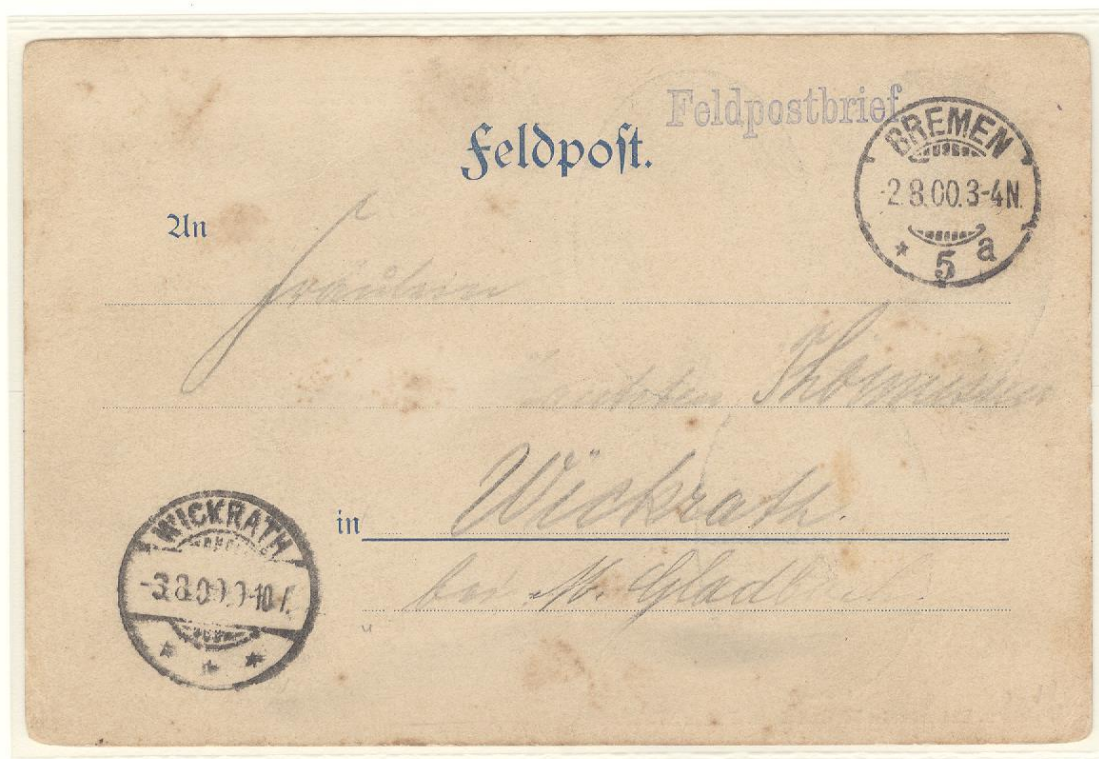 Feldpostbrief
Feldpost.
BREMEN
-2.8.00.3-4N.
* 5 a
An
Fräulein
Wickrath.
in
bei M. Gladb
WICKRATH
-3.8.00.9-10
* * *